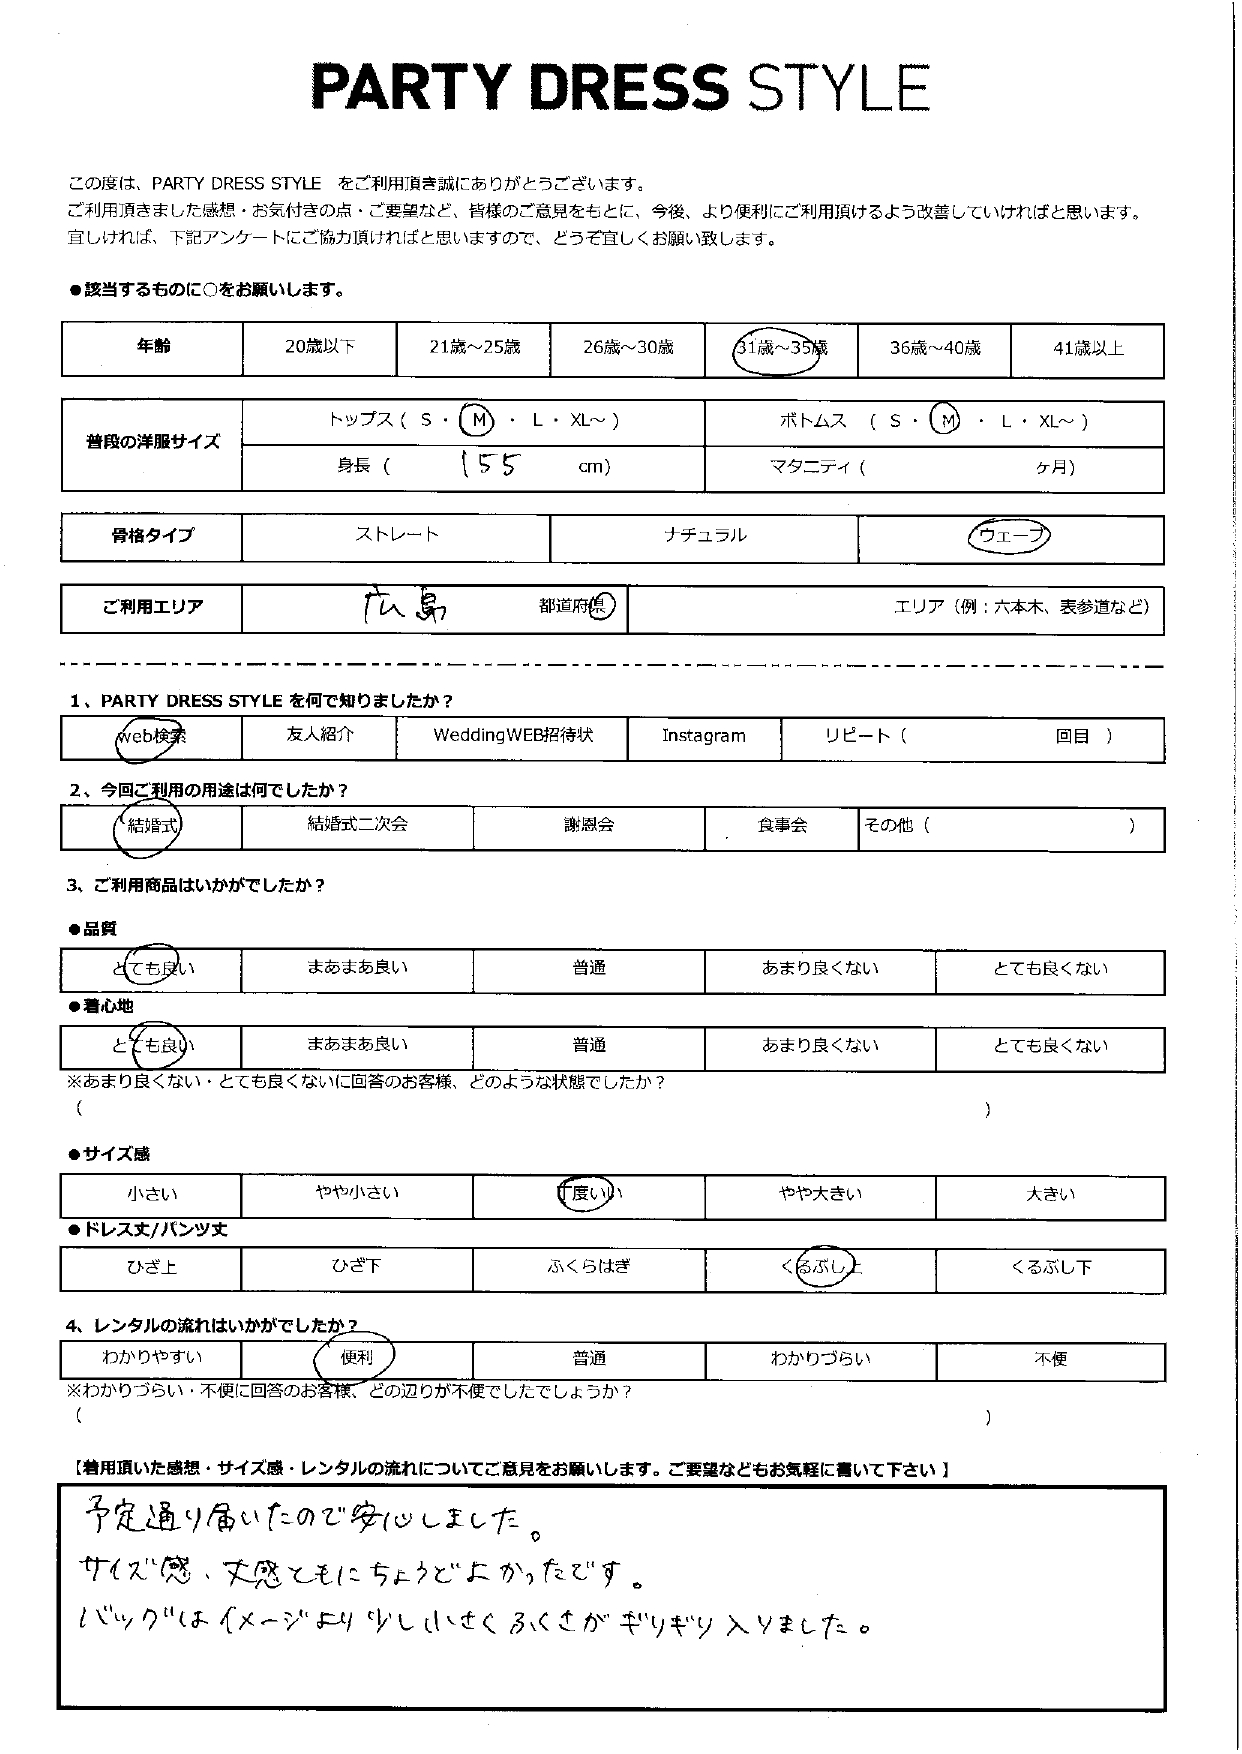 PARTY DRESS STYLE
この度は、PARTY DRESS STYLE をご利用頂き誠にありがとうございます。
ご利用頂きました感想・お気付きの点・ご要望など、皆様のご意見をもとに、今後、より便利にご利用頂けるよう改善していければと思います。
宜しければ、下記アンケートにご協力頂ければと思いますので、どうぞ宜しくお願い致します。
●該当するものに○をお願いします。
年齢 20歳以下 21歳～25歳 26歳～30歳 31歳～35歳 36歳～40歳 41歳以上
普段の洋服サイズ トップス ( S ・ M ・ L ・ XL～ ) ボトムス ( S ・ M ・ L ・ XL～ )
身長 ( 155 cm) マタニティ ( ヶ月)
骨格タイプ ストレート ナチュラル ウェーブ
ご利用エリア 広島 都道府県 エリア（例：六本木、表参道など）
1、PARTY DRESS STYLE を何で知りましたか？
web検索 友人紹介 WeddingWEB招待状 Instagram リピート ( 回目 )
2、今回ご利用の用途は何でしたか？
結婚式 結婚式二次会 謝恩会 食事会 その他 ( )
3、ご利用商品はいかがでしたか？
●品質
とても良い まあまあ良い 普通 あまり良くない とても良くない
●着心地
とても良い まあまあ良い 普通 あまり良くない とても良くない
※あまり良くない・とても良くないに回答のお客様、どのような状態でしたか？
( )
●サイズ感
小さい やや小さい 丁度いい やや大きい 大きい
●ドレス丈/パンツ丈
ひざ上 ひざ下 ふくらはぎ くるぶし上 くるぶし下
4、レンタルの流れはいかがでしたか？
わかりやすい 便利 普通 わかりづらい 不便
※わかりづらい・不便に回答のお客様、どの辺りが不便でしたでしょうか？
( )
【着用頂いた感想・サイズ感・レンタルの流れについてご意見をお願いします。ご要望などもお気軽に書いて下さい】
予定通り届いたので安心しました。
サイズ感、丈感ともにちょうどよかったです。
バッグはイメージより少し小さくふくさがギリギリ入りました。